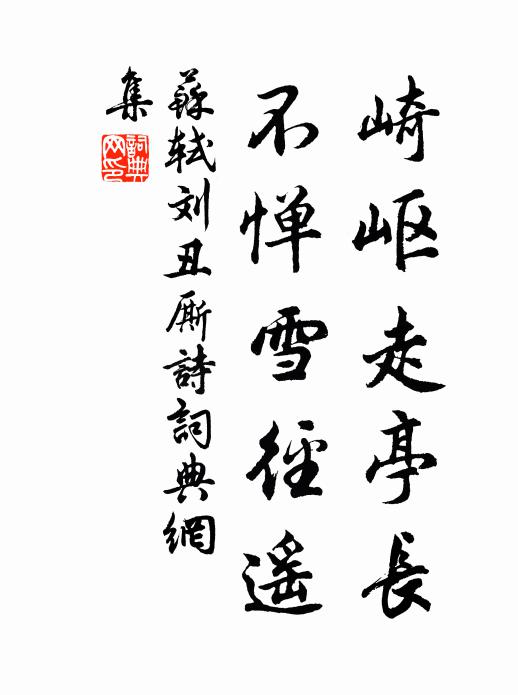 崎岖走亭長
不惮雪径遥
蘇轼刘丑厮詩詞典網
集
詞典网印